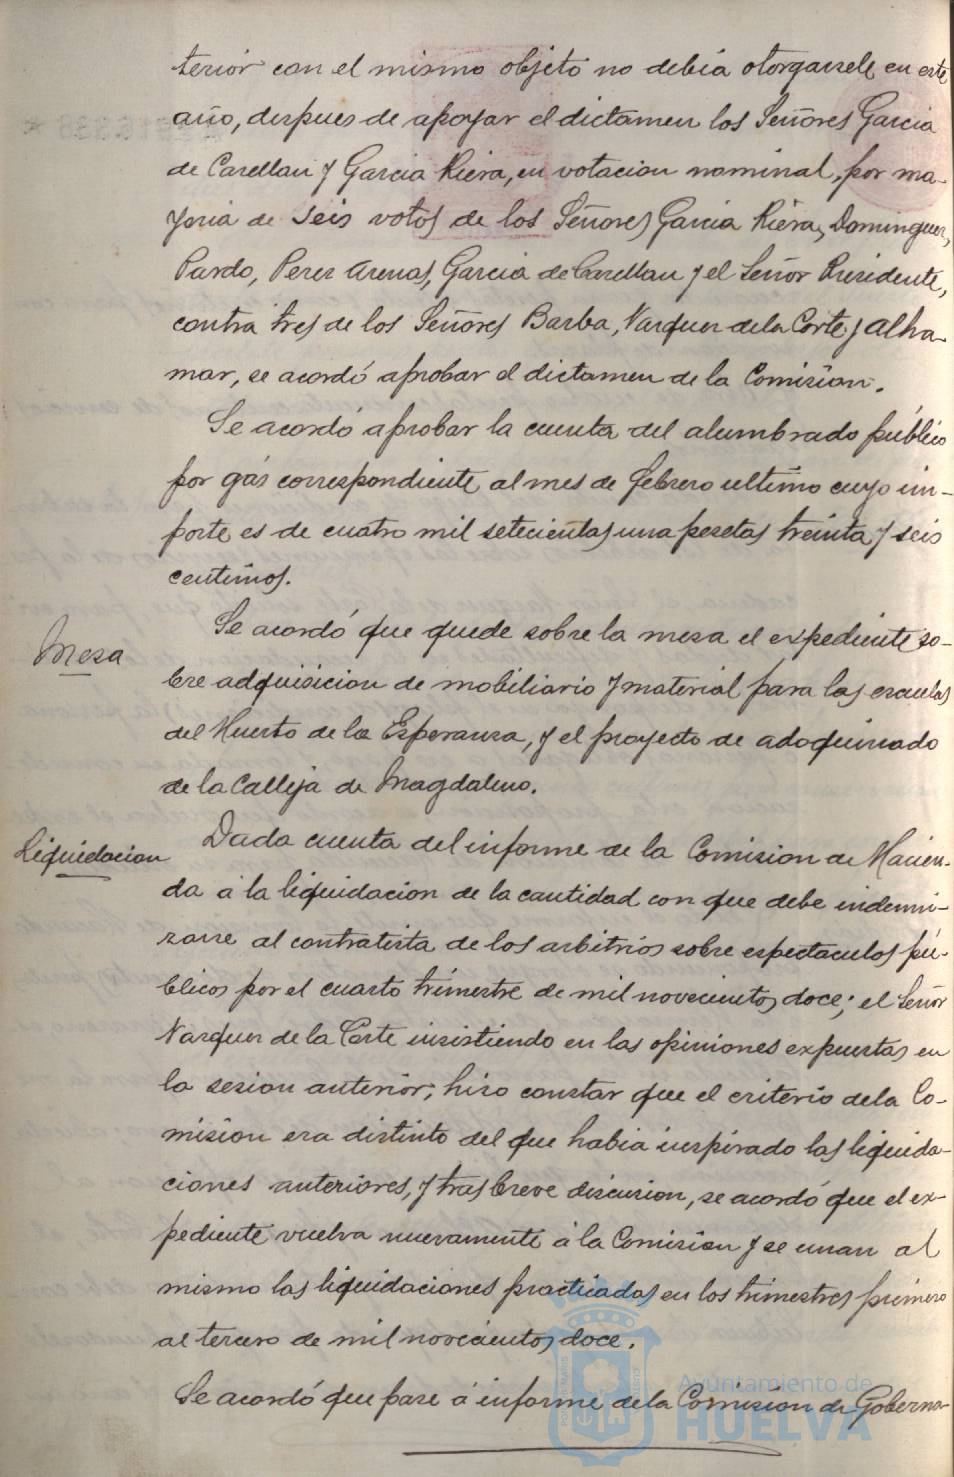 terior con el mismo objeto no debia otorgarsele en este
año, despues de apoyar el dictamen los Señores Garcia
de Casellau y Garcia Riera, en votacion nominal, por ma-
yoria de seis votos de los Señores Garcia Riera, Dominguez,
Pardo, Perez Arenas, Garcia de Casellau y el Señor Presidente,
contra tres de los Señores Barba, Vazquez de la Corte y Alha-
mar, se acordó aprobar el dictamen de la Comision.
Se acordó aprobar la cuenta del alumbrado público
por gas correspondiente al mes de febrero ultimo cuyo im-
porte es de cuatro mil setecientas una pesetas treinta y seis
centimos.
Mesa
Se acordó que quede sobre la mesa el expediente so-
bre adquisicion de mobiliario y material para las escuelas
del Huerto de la Esperanza, y el proyecto de adoquinado
de la Calleja de Magdaleno.
Liquidacion
Dada cuenta del informe de la Comision de Hacien-
da á la liquidacion de la cantidad con que debe indemni-
zarse al contratista de los arbitrios sobre espectaculos pú-
blicos por el cuarto trimestre de mil novecientos doce; el Señor
Vazquez de la Corte insistiendo en las opiniones expuestas en
la sesion anterior, hizo constar que el criterio de la Co-
mision era distinto del que habia inspirado las liquida-
ciones anteriores, y tras breve discusion, se acordó que el ex-
pediente vuelva nuevamente á la Comision y se unan al
mismo las liquidaciones practicadas en los trimestres primero
al tercero de mil novecientos doce.
Se acordó que pase á informe de la Comision de Goberna-
Ayuntamiento de
HUELVA